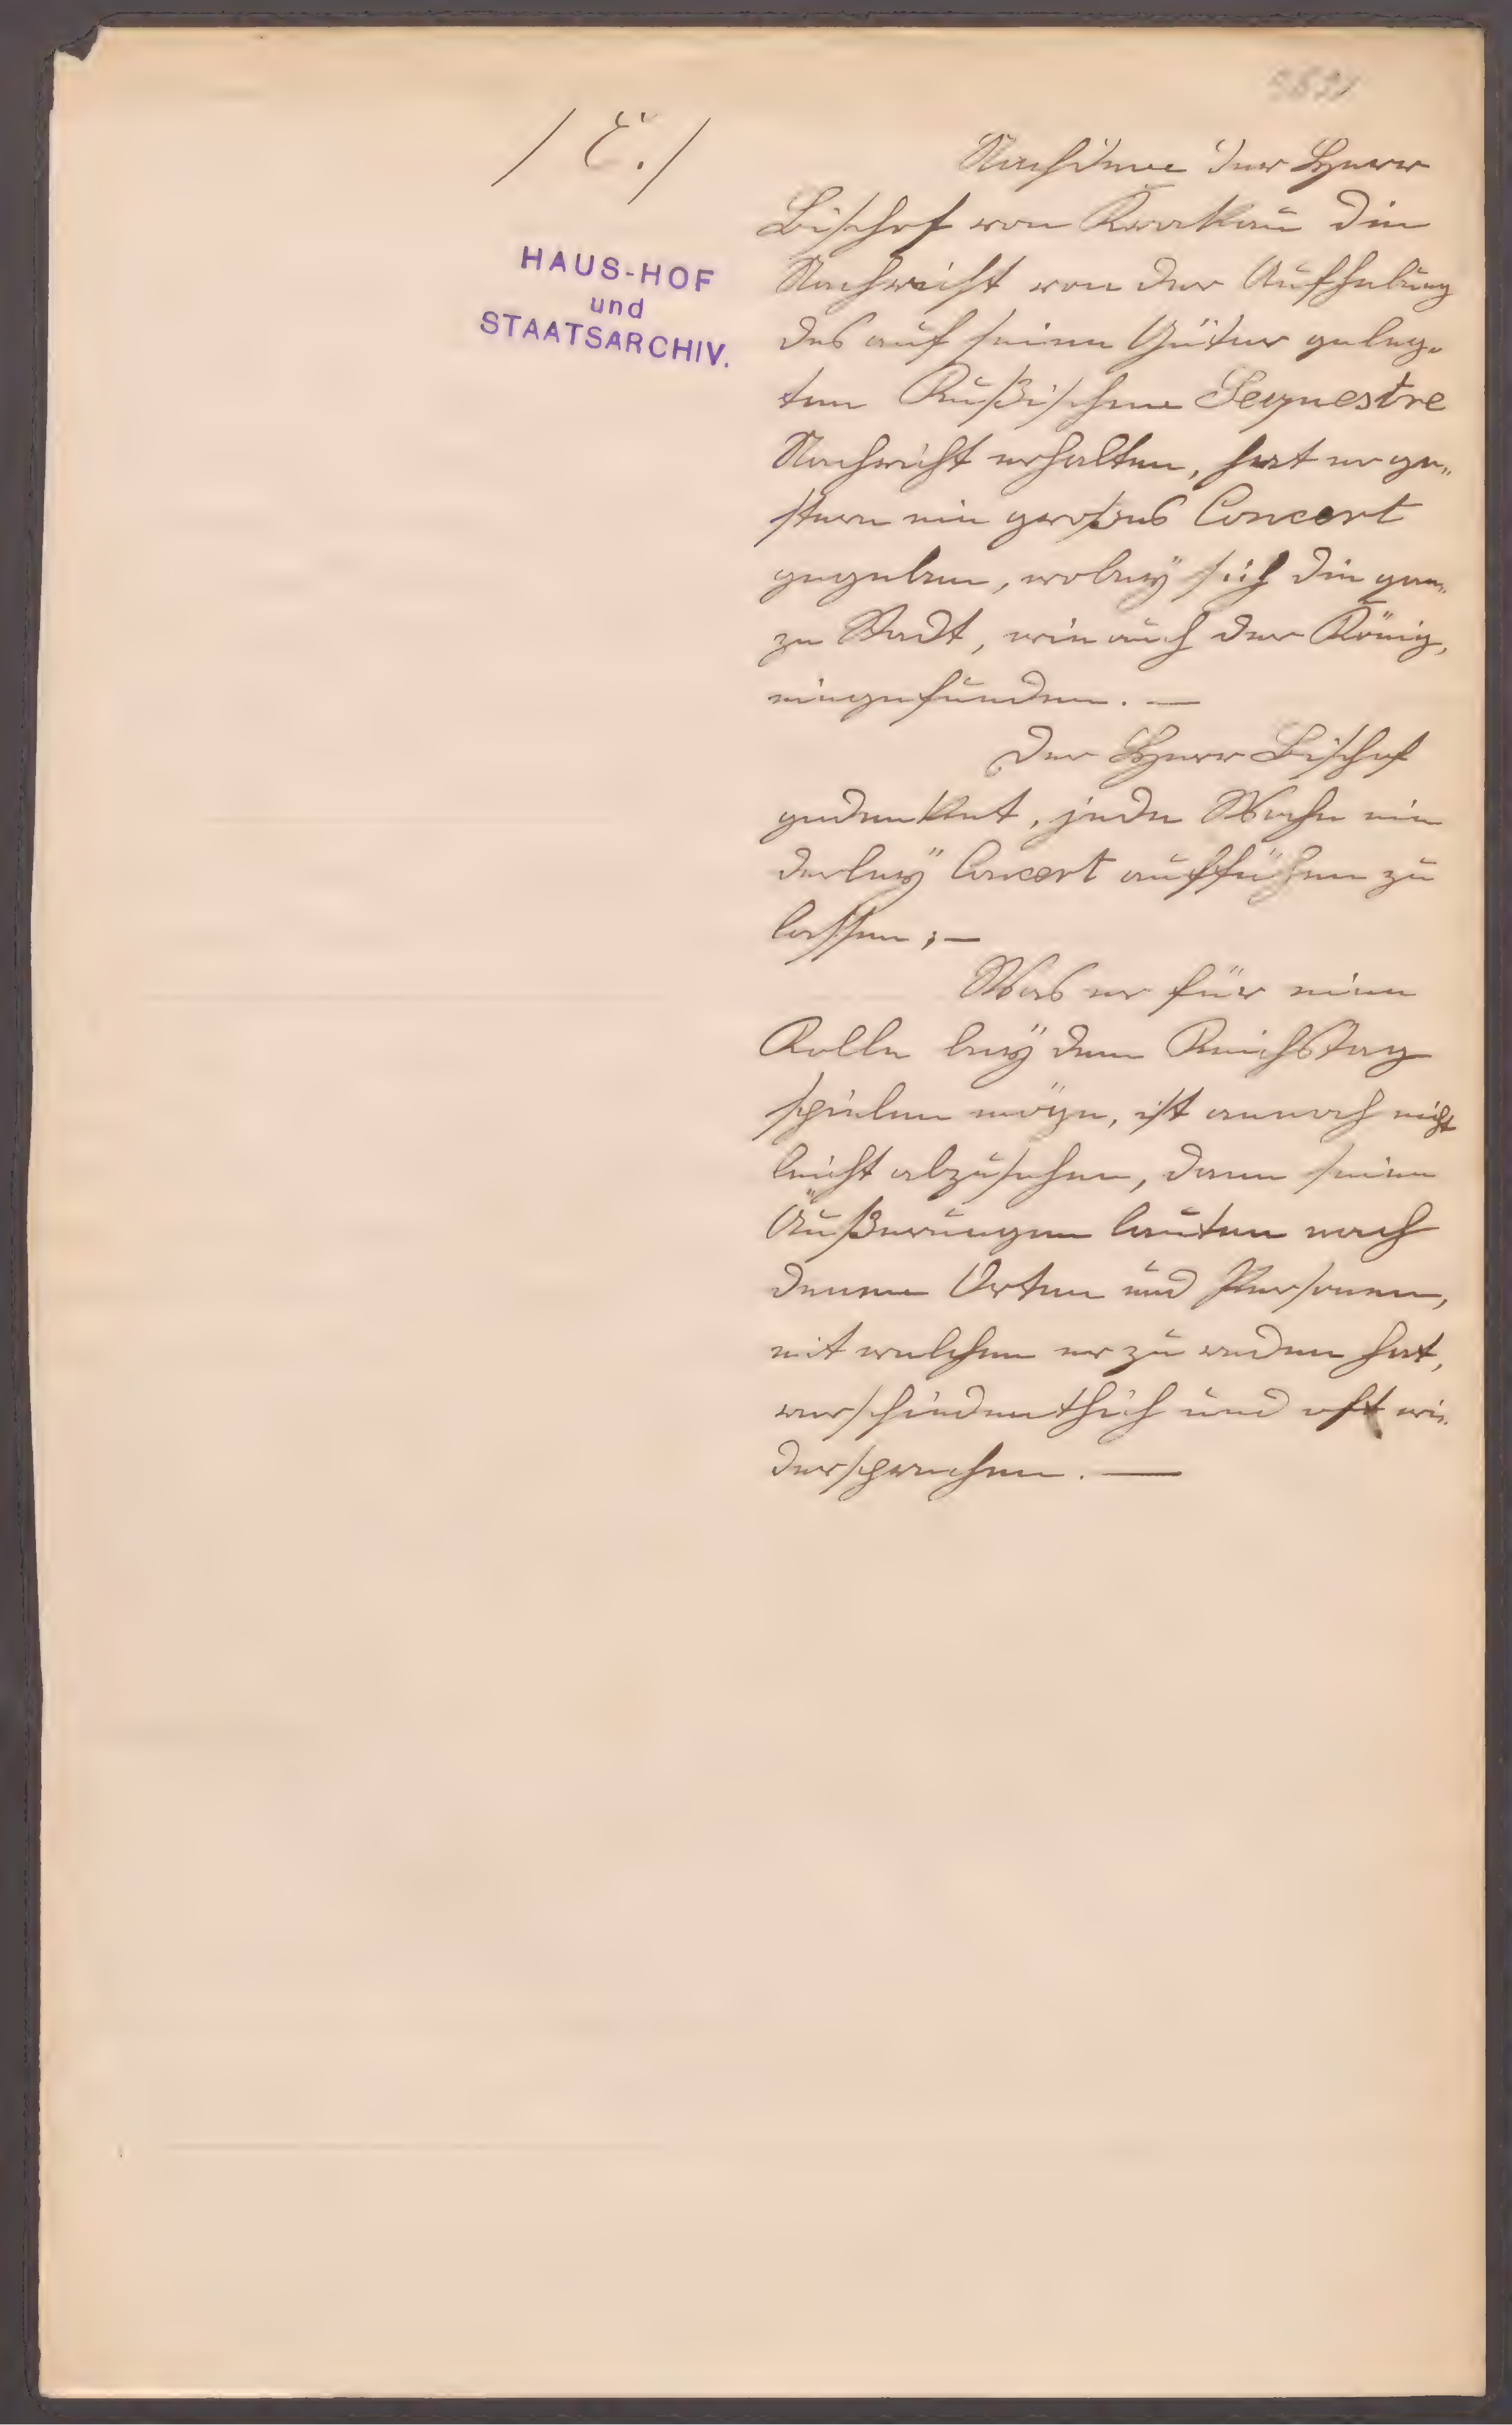 / C. /
HAUS-HOF
und
STAATSARCHIV.
Nachdeme der Herr
Bischof von Krakau die
Nachricht von der Aufhebung
des auf seine Güter geleg-
ten Rußischen Sequestre
Nachricht erhalten, hat er ge„
stern ein großes Concert
gegeben, wobeÿ sich die gan„
ze Stadt, wie auch der König,
eingefunden. —
Der Herr Bischof
gedenket, jede Woche ein
derleÿ Concert aufführen zu
lassen; —
Was er für eine
Rolle beÿ dem Reichstag
spielen möge, ist annoch nicht
leicht abzusehen, dann seine
Äußerungen lauten nach
denen Orten und Personen,
mit welchen er zu reden hat,
verschiedentlich und oft wi-
dersprechen. —